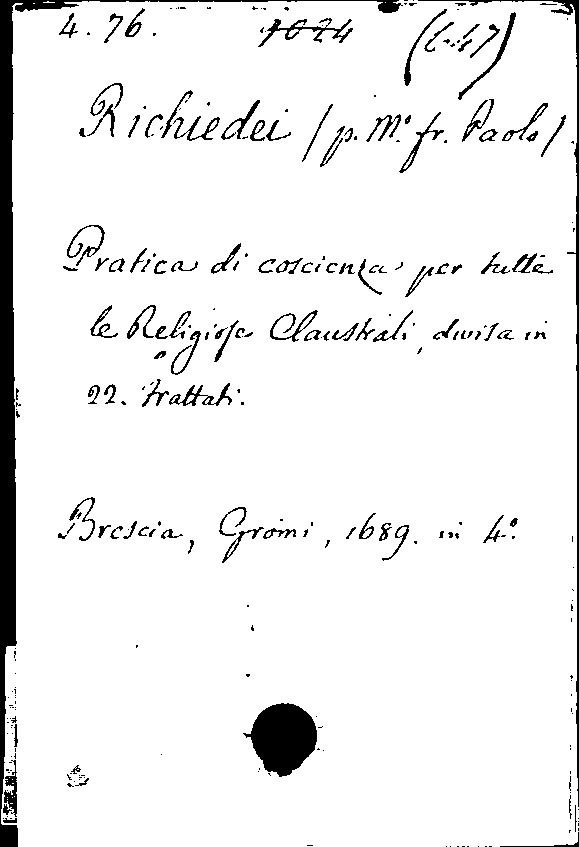 4. 76. 1024 (L.47)
Richiedei / p. M.º fr. Paolo /
Pratica di coscienza per tutte
le Religiose Claustrali, divisa in
22. trattati.
Brescia, Gromi, 1689. in 4º.